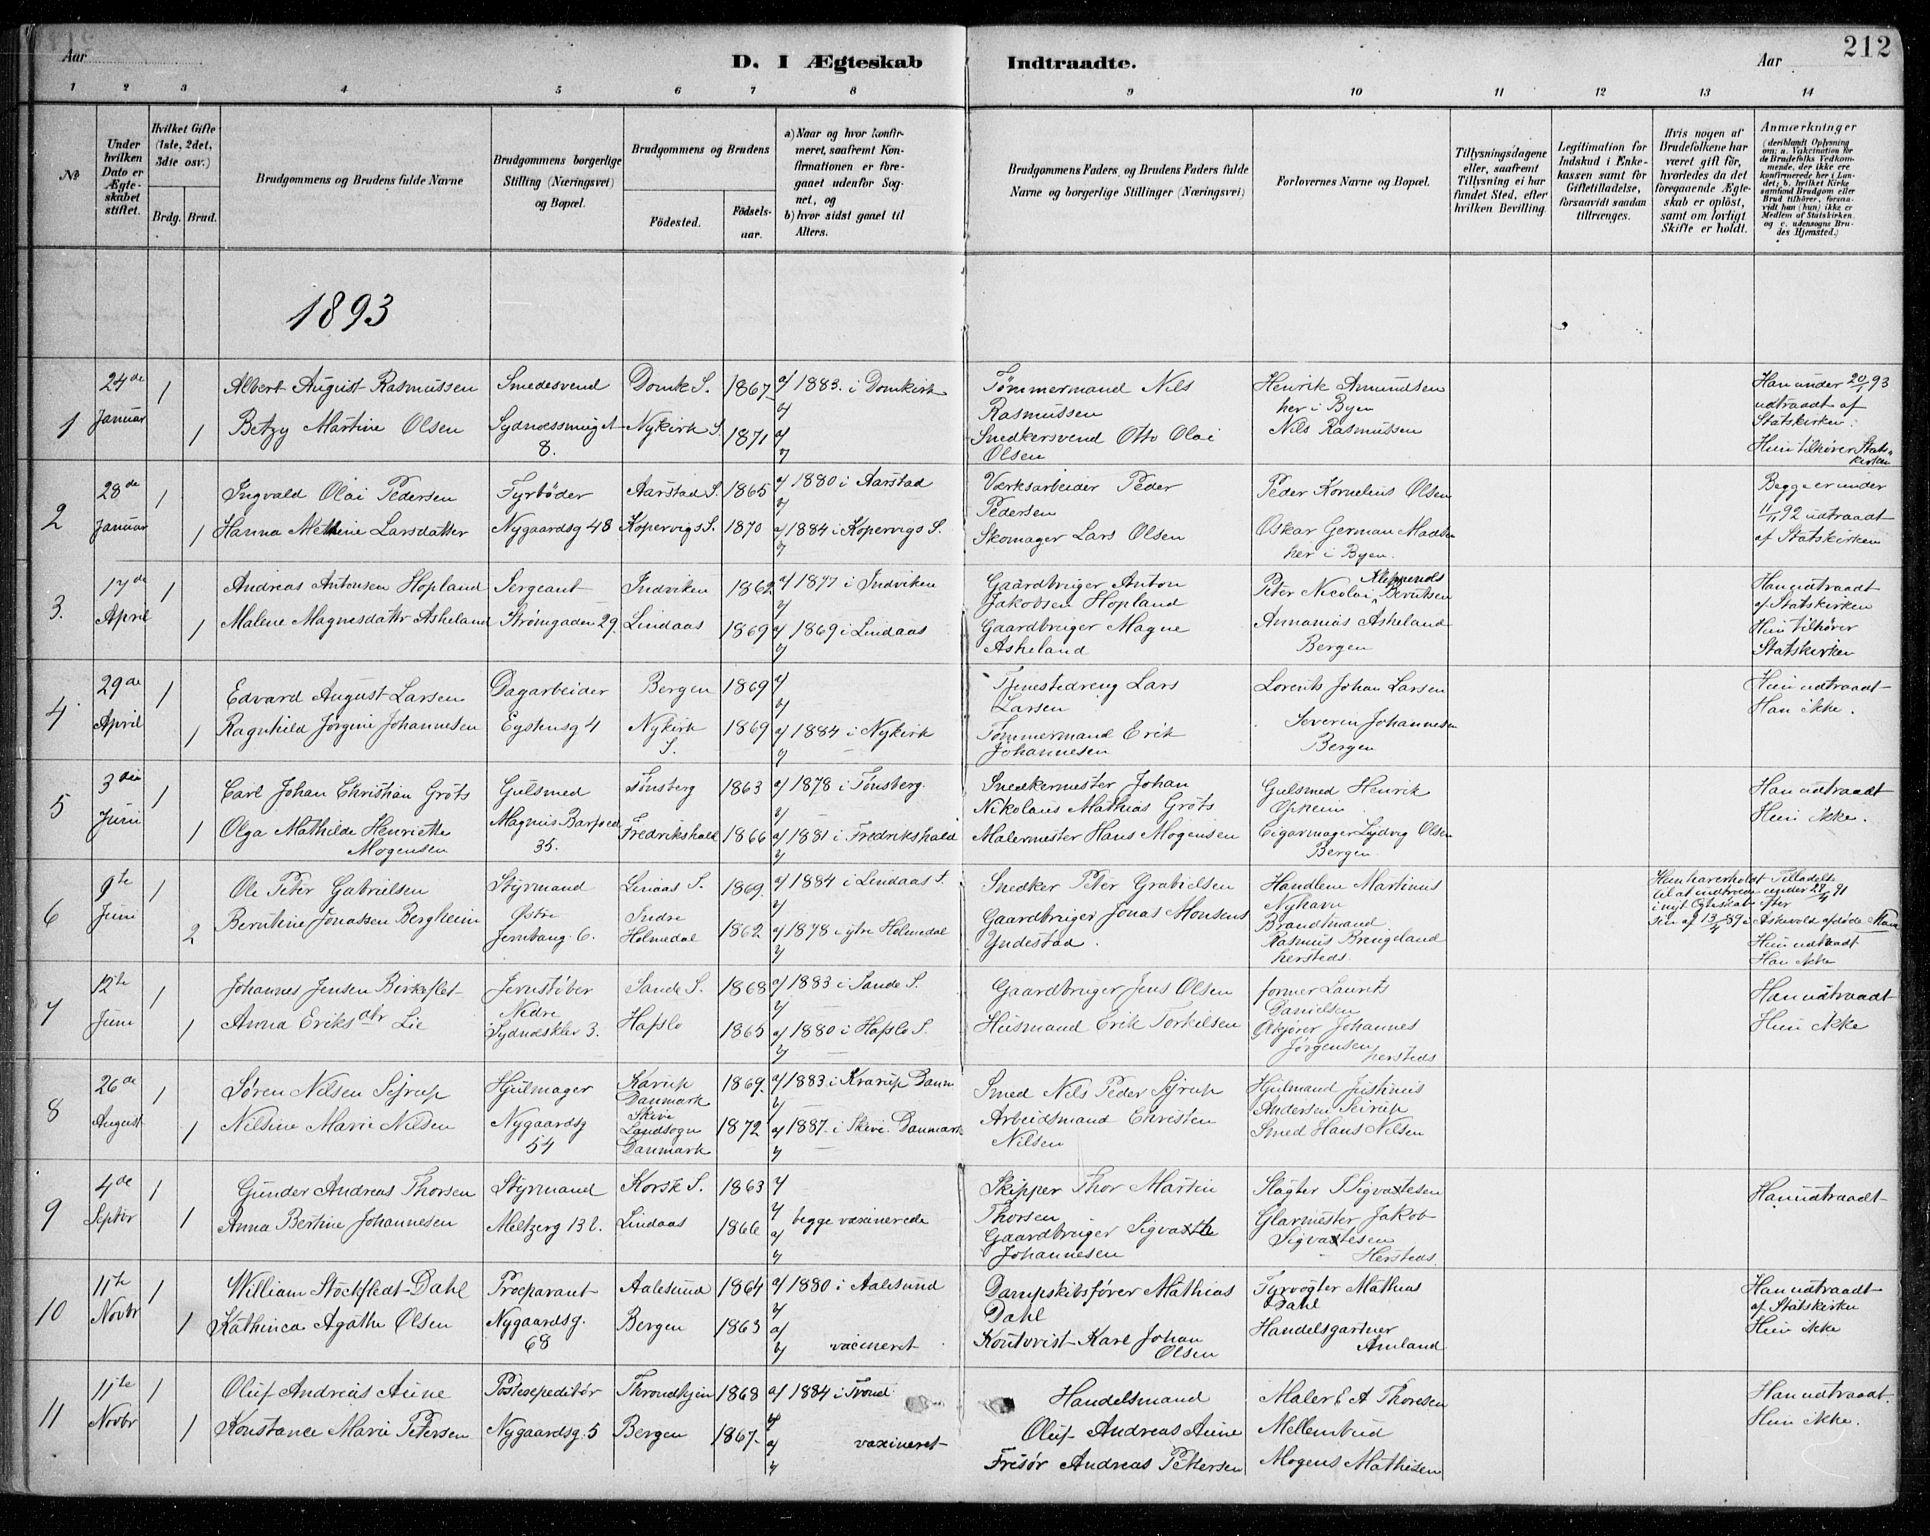 212
Aar
D. I Ægteskab Indtraadte.
Aar
1 2 3 4 5 6 7 8 9 10 11 12 13 14
No
Under hvilken Dato er Ægteskabet stiftet.
Hvilket Gifte (1ste, 2det, 3die osv.)
Brdg. Brud.
Brudgommens og Brudens fulde Navne
Brudgommens borgerlige Stilling (Næringsvei) og Bopæl.
Brudgommens og Brudens
Fødested. Fødselsaar.
a) Naar og hvor konfirmeret, saafremt Konfirmationen er foregaaet udenfor Sognet, og
b) hvor sidst gaaet til Alters.
Brudgommens Faders, og Brudens Faders fulde Navne og borgerlige Stillinger (Næringsvei)
Forlovernes Navne og Bopæl.
Tillysningsdagene eller, saafremt Tillysning ei har fundet Sted, efter hvilken Bevilling.
Legitimation for Indskud i Enkekassen samt for Giftetilladelse, forsaavidt saadan tiltrænges.
Hvis nogen af Brudefolkene har været gift før, hvorledes da det foregaaende Ægteskab er opløst, samt om lovligt Skifte er holdt.
Anmærkninger
(deriblandt Oplysning om: a. Vakcination for de Brudefolks Vedkommende, der ikke ere konfirmerede her i Landet; b. hvilket Kirkesamfund Brudgom eller Brud tilhører, forsaavidt han (hun) ikke er Medlem af Statskirken, og c. udensogns Brudes Hjemsted.)
1893
1 24de Januar 1 Albert August Rasmussen Smedesvend Domk S. 1867 a/ 1883. i Domkirk Tømmermand Nils Rasmussen Henrik Amundsen her i Byen Han under 20/1 93 udtraadt af Statskirken.
1 Betzy Martine Olsen Sydnessmuget 8. Nykirk S. 1871 Snedkersvend Otto Olai Olsen Nils Rasmussen Hun tilhører Statskirken
2 28de Januar 1 Ingvald Olai Pedersen Fyrbøder Aarstad S. 1865 a/ 1880 i Aarstad Værksarbeider Peder Pedersen Peder Kornelius Olsen Begge er under 11/11 92 udtraadt af Statskirken
1 Hanna Methine Larsdatter Nygaardsg 48 Kopervigs S. 1870 a/ 1884 i Kopervigs S. Skomager Lars Olsen Oskar German Madsen her i Byen.
3. 17de April 1 Andreas Antonsen Hopland Sergeant Indviken 1862 a/ 1877 i Indviken Gaardbruger Anton Jakobsen Hopland Peter Nicolai Berntsen Han udtraadt af Statskirken
1 Malene Magnesdattr Asheland Strømgaden 29. Lindaas 1869 a/ 1869 i Lindaas Gaardbruger Magne Asheland Annanias Asheland Bergen Hun tilhører Statskirken
4 29de April 1 Edvard August Larsen Dagarbeider Bergen 1869 a/ Tjenestedreng Lars Larsen Lorents Johan Larsen Hun udtraadt Han ikke.
1 Ragnhild Jørgini Johannesen Egstensg 4 Nykirk S. 1869 a/ 1884 i Nykirk Tømmermand Erik Johannesen Severen Johannesen Bergen
5 3die Juni 1 Carl Johan Christian Grøts Gulsmed Tønsberg 1863 a/ 1878 i Tønsberg. Snedkermester Johan Nikolaus Mathias Grøts Gulsmed Henrik Opheim Han udtraadt Hun ikke.
1 Olga Mathilde Henriette Mogensen Magnus Barfred 35. Fredrikshald 1866 a/ 1881 i Fredrikshald Malermester Hans Mogensen Cigarmager Lydvig Olsen Bergen
6 9te Juni 1 Ole Peter Gabrielsen Styrmand Linaas S. 1869. a/ 1884 i Lindaas S. Snedker Peter Grabielsen Handlene Martinus Nyhavn
2 Berntine Jonassen Bergheim Østre Jernbang. 6. Indre Holmedal 1862 a/ 1878 i ytre Holmedal Gaardbruger Jonas Monsens Yndestad. Brandtmand Rasmus Brengeland hersteds Hun udtraadt Han ikke
7 12te Juni 1 Johannes Jensen Birkeflet Jernstøber Sande S. 1868 a/ 1883 i Sande S. Gaardbruger Jens Olsen former Laurits Danielsen Han udtraadt Hun ikke
1 Anna Eriksdtr Lie Nedre Sydneskler 3. Hafslo 1865 a/ 1880 i Hafslo S. Husmand Erik Torkilsen Johannes Jørgensen hersteds
8 26de August 1 Søren Nilsen Sejrup Hjulmager Karup Danmark 1869. a/ 1883 i Krarup Danm Smed Nils Peder Sejrup Hjulmand Justinus Andersen Seirup
1 Nilsine Marie Nilsen Nygaardsg 54 Skive Landsogn Danmark 1872 a/ 1887. i Skive. Danmark Arbeidsmand Christen Nilsen Smed Hans Nilsen
9 4de Septbr 1 Gunder Andreas Thorsen Styrmand Korsk S. 1863 Skipper Thor Martin Thorsen Slagter Sigvartesen Han udtraadt
1 Anna Bertine Johannesen Meltzerg 13 2. Lindaas 1866 begge vaxinerede Gaardbruger Johannesen Glarmester Jakob Hersteds.
10 11te Novbr 1 William Stockfledt Dahl Præparant Aalesund 1864 a/ 1880 i Aalesund Dampskibsfører Mathias Dahl Fyrvogter Mathias Dahl Han udtraadt af Statskirken Hun ikke
1 Kathinca Agathe Olsen Nygaardsg. 68 Bergen 1863 vacineret Kontorist Karl Johan Olsen Handelsgartner Amland
11 11te Novbr 1 Oluf Andreas Aune Postexpeditør Throndhjem 1868 a/ 1884 i Trond. Handelsmand Oluf Andreas Aune Maler E A Thoresen Han udtraadt. Hun ikke.
1 Konstance Marie Petersen Nygaardsg. 5 Bergen 1867. vaxineret Frisør Andreas Pettersen Mogens Mathisen